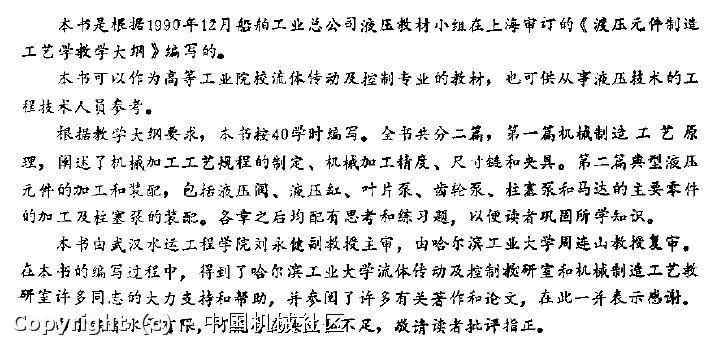 本书是根据1990年12月船舶工业总公司液压教材小组在上海审订的《液压元件制造
工艺学教学大纲》编写的。
本书可以作为高等工业院校流体传动及控制专业的教材，也可供从事液压技术的工
程技术人员参考。
根据教学大纲要求，本书按40学时编写。全书共分二篇，第一篇机械制造工艺原
理，阐述了机械加工工艺规程的制定、机械加工精度、尺寸链和夹具。第二篇典型液压
元件的加工和装配，包括液压阀、液压缸、叶片泵、齿轮泵、柱塞泵和马达的主要零件
的加工及柱塞泵的装配。各章之后均配有思考和练习题，以便读者巩固所学知识。
本书由武汉水运工程学院刘永健副教授主审，由哈尔滨工业大学周连山教授复审。
在本书的编写过程中，得到了哈尔滨工业大学流体传动及控制教研室和机械制造工艺教
研室许多同志的大力支持和帮助，并参阅了许多有关著作和论文，在此一并表示感谢。
水 有限， 不足，敬请读者批评指正。
Copyright (c) 中国机械社区